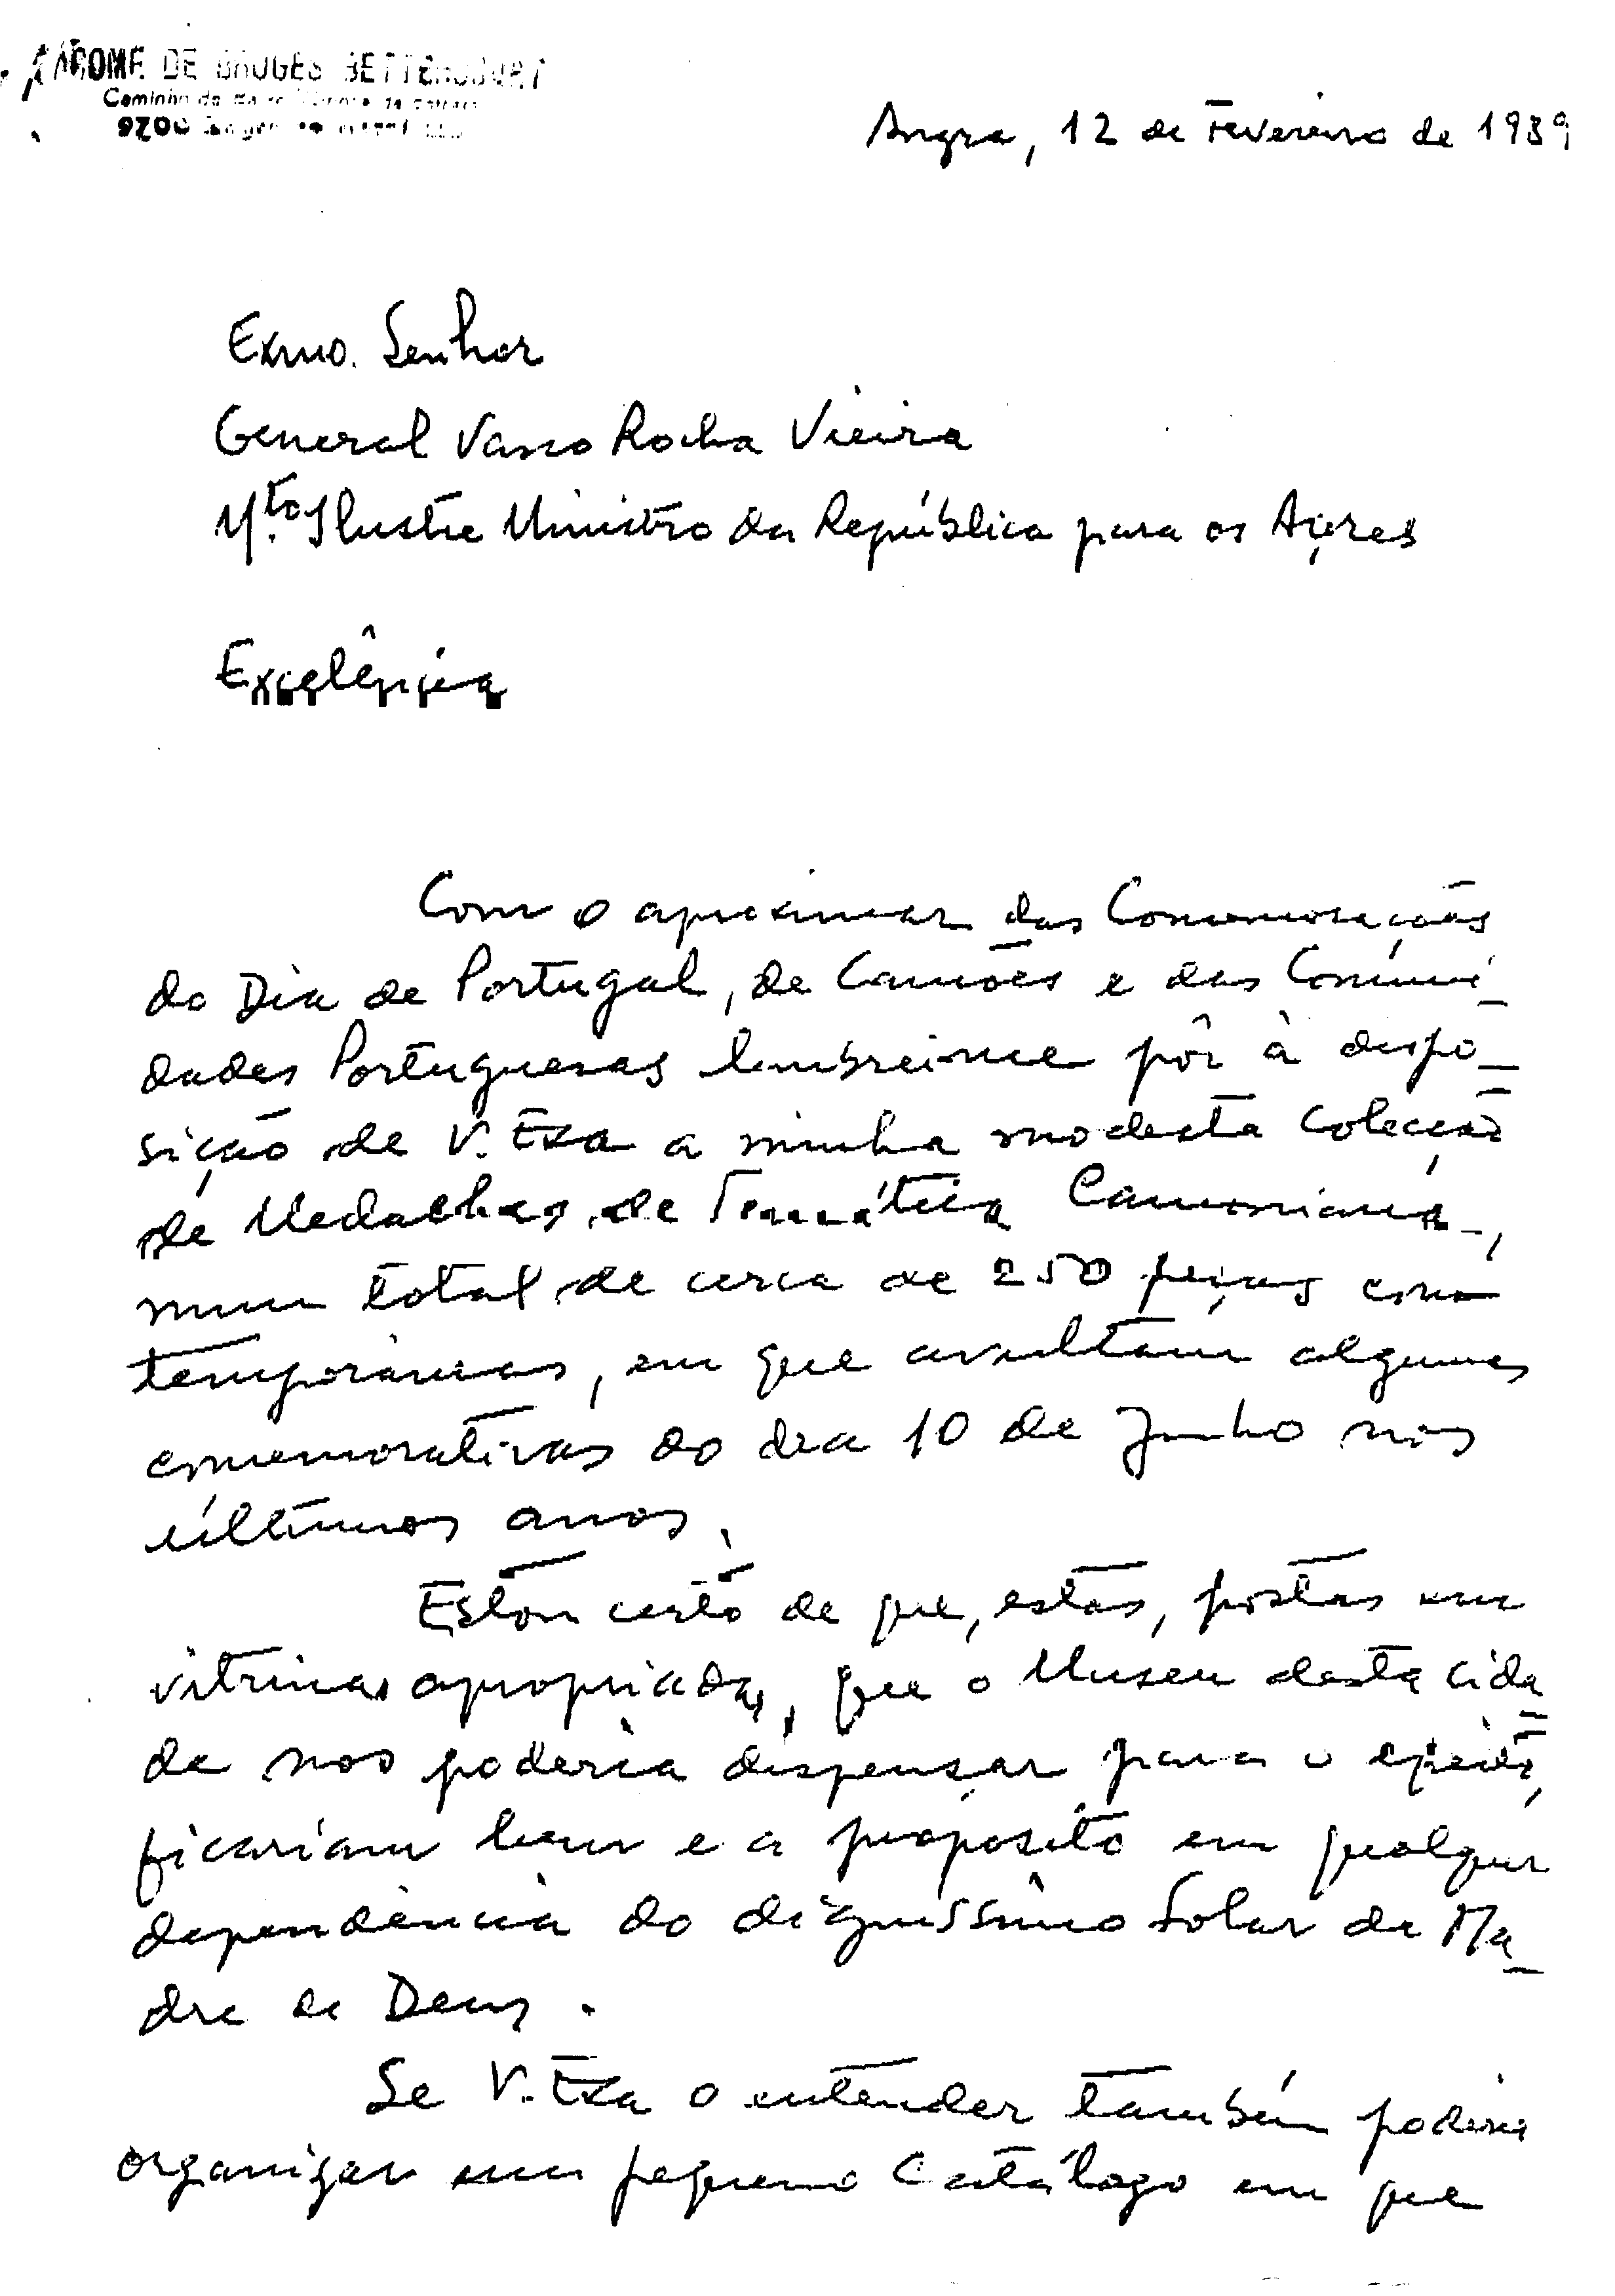 JÁCOME DE BRUGES BETTENCOURT
Caminho do
9700
Angra, 12 de Fevereiro de 1989
Exmo. Senhor
General Vasco Rocha Vieira
M.to Ilustre Ministro da República para os Açores
Excelência
Com o aproximar das Comemorações
do Dia de Portugal, de Camões e das Comuni-
dades Portuguesas lembrei-me pôr à dispo-
sição de V. Exa a minha modesta colecção
de Medalhas de Temática Camoniana,
num total de cerca de 250 peças con-
temporâneas, em que avultam algumas
comemorativas do dia 10 de Junho nos
últimos anos.
Estou certo de que, estas, postas em
vitrinas apropriadas, que o Museu desta cida-
de nos poderia dispensar para o efeito,
ficariam bem e a propósito em qualquer
dependência do digníssimo Solar da Ma-
dre de Deus.
Se V. Exa o entender também poderia
organizar um pequeno Catálogo em que